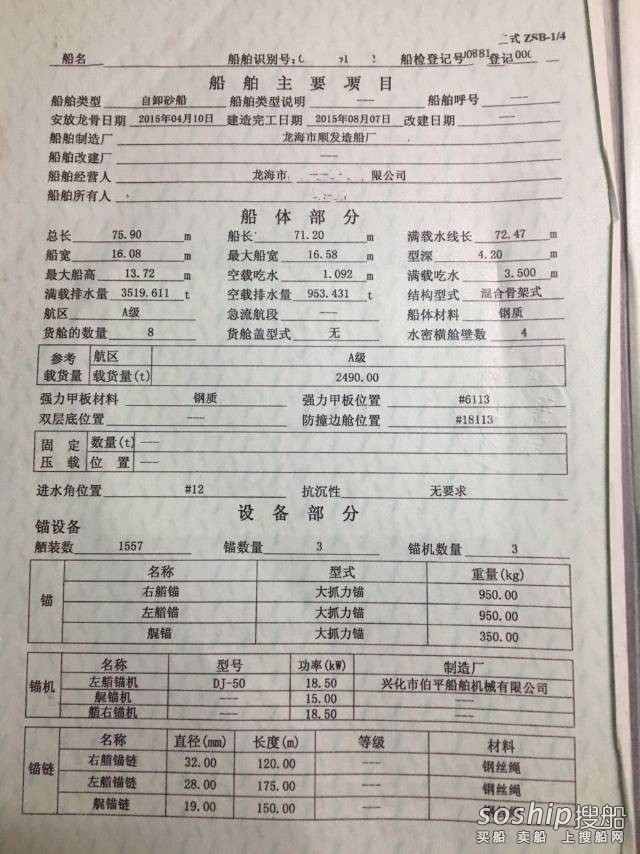 式 ZSB-1/4
船名 船舶识别号: 船检登记号 0881 登记 000
船舶主要项目
船舶类型 自卸砂船 船舶类型说明 --- 船舶呼号 ---
安放龙骨日期 2015年04月10日 建造完工日期 2015年08月07日 改建日期 ---
船舶制造厂 龙海市顺发造船厂
船舶改建厂 ---
船舶经营人 龙海市 限公司
船舶所有人
船体部分
总长 75.90 m 船长 71.20 m 满载水线长 72.47 m
船宽 16.08 m 最大船宽 16.58 m 型深 4.20 m
最大船高 13.72 m 空载吃水 1.092 m 满载吃水 3.500 m
满载排水量 3519.611 t 空载排水量 953.431 t 结构型式 混合骨架式
航区 A级 急流航段 --- 船体材料 钢质
货舱的数量 8 货舱盖型式 无 水密横舱壁数 4
参考 航区 A级
载货量 载货量(t) 2490.00
强力甲板材料 钢质 强力甲板位置 #6113
双层底位置 --- 防撞边舱位置 #18113
固定 数量(t) ---
压载 位置 ---
进水角位置 #12 抗沉性 无要求
设备部分
锚设备
舾装数 1557 锚数量 3 锚机数量 3
锚
名称 型式 重量(kg)
右艏锚 大抓力锚 950.00
左艏锚 大抓力锚 950.00
艉锚 大抓力锚 350.00
锚机
名称 型号 功率(kW) 制造厂
左艏锚机 DJ-50 18.50 兴化市伯平船舶机械有限公司
艉锚机 --- 15.00 ---
艏右锚机 --- 18.50 ---
锚链
名称 直径(mm) 长度(m) 等级 材料
右艏锚链 32.00 120.00 --- 钢丝绳
左艏锚链 28.00 175.00 --- 钢丝绳
艉锚链 19.00 150.00 ---
soship搜船
买船 卖船 上搜船网